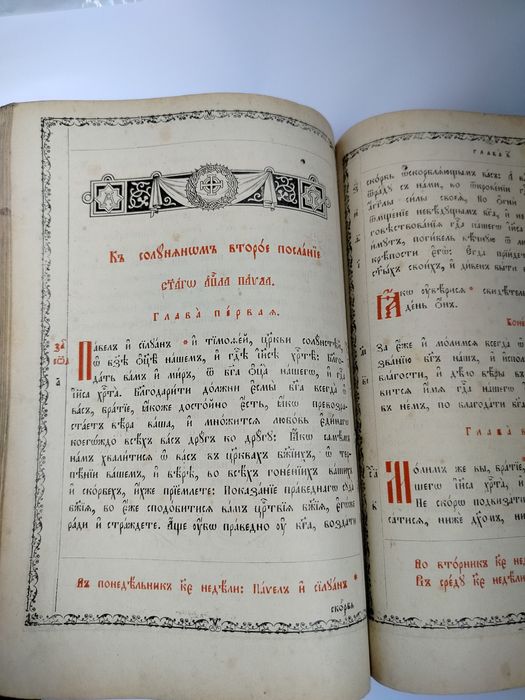 Къ солꙋнѧнѡмъ второ́е посла́нїе
ст҃а́гѡ а҆п҃ла па́ѵла.
Глава̀ пе́рваѧ.
Па́велъ и҆ сїлꙋа́нъ и҆ тїмоѳе́й, цр҃кви солꙋ́нстѣй,
ѡ҆ бз҃ѣ ѻ҆ц҃ѣ̀ на́шемъ, и҆ гдⷭ҇ѣ і҆и҃сѣ хрⷭ҇тѣ̀: Бл҃го-
да́ть ва́мъ и҆ ми́ръ, ѿ бг҃а ѻ҆ц҃а̀ на́шегѡ, и҆ гдⷭ҇а
і҆и҃са хрⷭ҇та̀. Благодари́ти до́лжни є҆смы̀ бг҃а всегда̀ ѡ҆
ва́съ, бра́тїе, ꙗ҆́коже досто́йно є҆́сть, ꙗ҆́кѡ превозра-
ста́етъ вѣ́ра ва́ша, и҆ мно́житсѧ любо́вь є҆ди́нагѡ
коегѡ́ждо всѣ́хъ ва́съ дрꙋ́гъ ко дрꙋ́гꙋ: Ꙗ҆́кѡ самѣ̑мъ
на́мъ хвали́тисѧ ѡ҆ ва́съ въ цр҃квахъ бж҃їихъ, ѡ҆ тер-
пѣ́нїи ва́шемъ, и҆ вѣ́рѣ, во всѣ́хъ гоне́нїихъ ва́шихъ
и҆ ско́рбехъ, и҆̀хже прїе́млете: Показа́нїе пра́веднагѡ сꙋда̀
бж҃їѧ, во є҆́же сподо́битисѧ ва́мъ црⷭ҇твїѧ бж҃їѧ, є҆гѡ́же
ра́ди и҆ стра́ждете. А҆́ще ᲂу҆́бѡ пра́ведно ᲂу҆ бг҃а, возда́ти
Въ понедѣ́льникъ к҃є недѣ́ли: Па́велъ и҆ сїлꙋа́нъ
ско́рбь
Глава̀
ско́рбь ѡ҆скорблѧ́ющымъ ва́съ: А҆ ва́-
ѿра́дꙋ съ на́ми, во ѿкрове́нїи
а҆́гг҃лы си́лы своеѧ̀, Во ѻ҆гнѝ
ѿмще́нїе невѣ́дꙋщымъ бг҃а, и҆
говѣствова́нїѧ гдⷭ҇а на́шегѡ і҆и҃
и҆́мꙋтъ, поги́бель вѣ́чнꙋю
крѣ́пости є҆гѡ̀: Е҆гда̀ прїи́детъ
ст҃ы́хъ свои́хъ, и҆ ди́венъ бы́ти
Ꙗ҆́кѡ ᲂу҆вѣ́рисѧ свидѣ́тел
де́нь ѻ҆́нъ.
за̀ є҆́же и҆ мо́лимсѧ всегда̀ ѡ҆
зва́нїю бг҃ъ на́шъ, и҆ и҆спо
бла́гости, и҆ дѣ́ло вѣ́ры въ
витсѧ и҆́мѧ гдⷭ҇а на́шегѡ
въ не́мъ, по благода́ти бг҃а
Глава̀
Мо́лимъ же вы̀, бра́тїе
шегѡ і҆и҃са хрⷭ҇та̀, и҆
Не ско́рѡ подви́затис
сатисѧ, нижѐ дꙋ́хомъ, ни
Во вто́рникъ к҃є недѣ́ли
Въ сре́дꙋ к҃є недѣ́ли